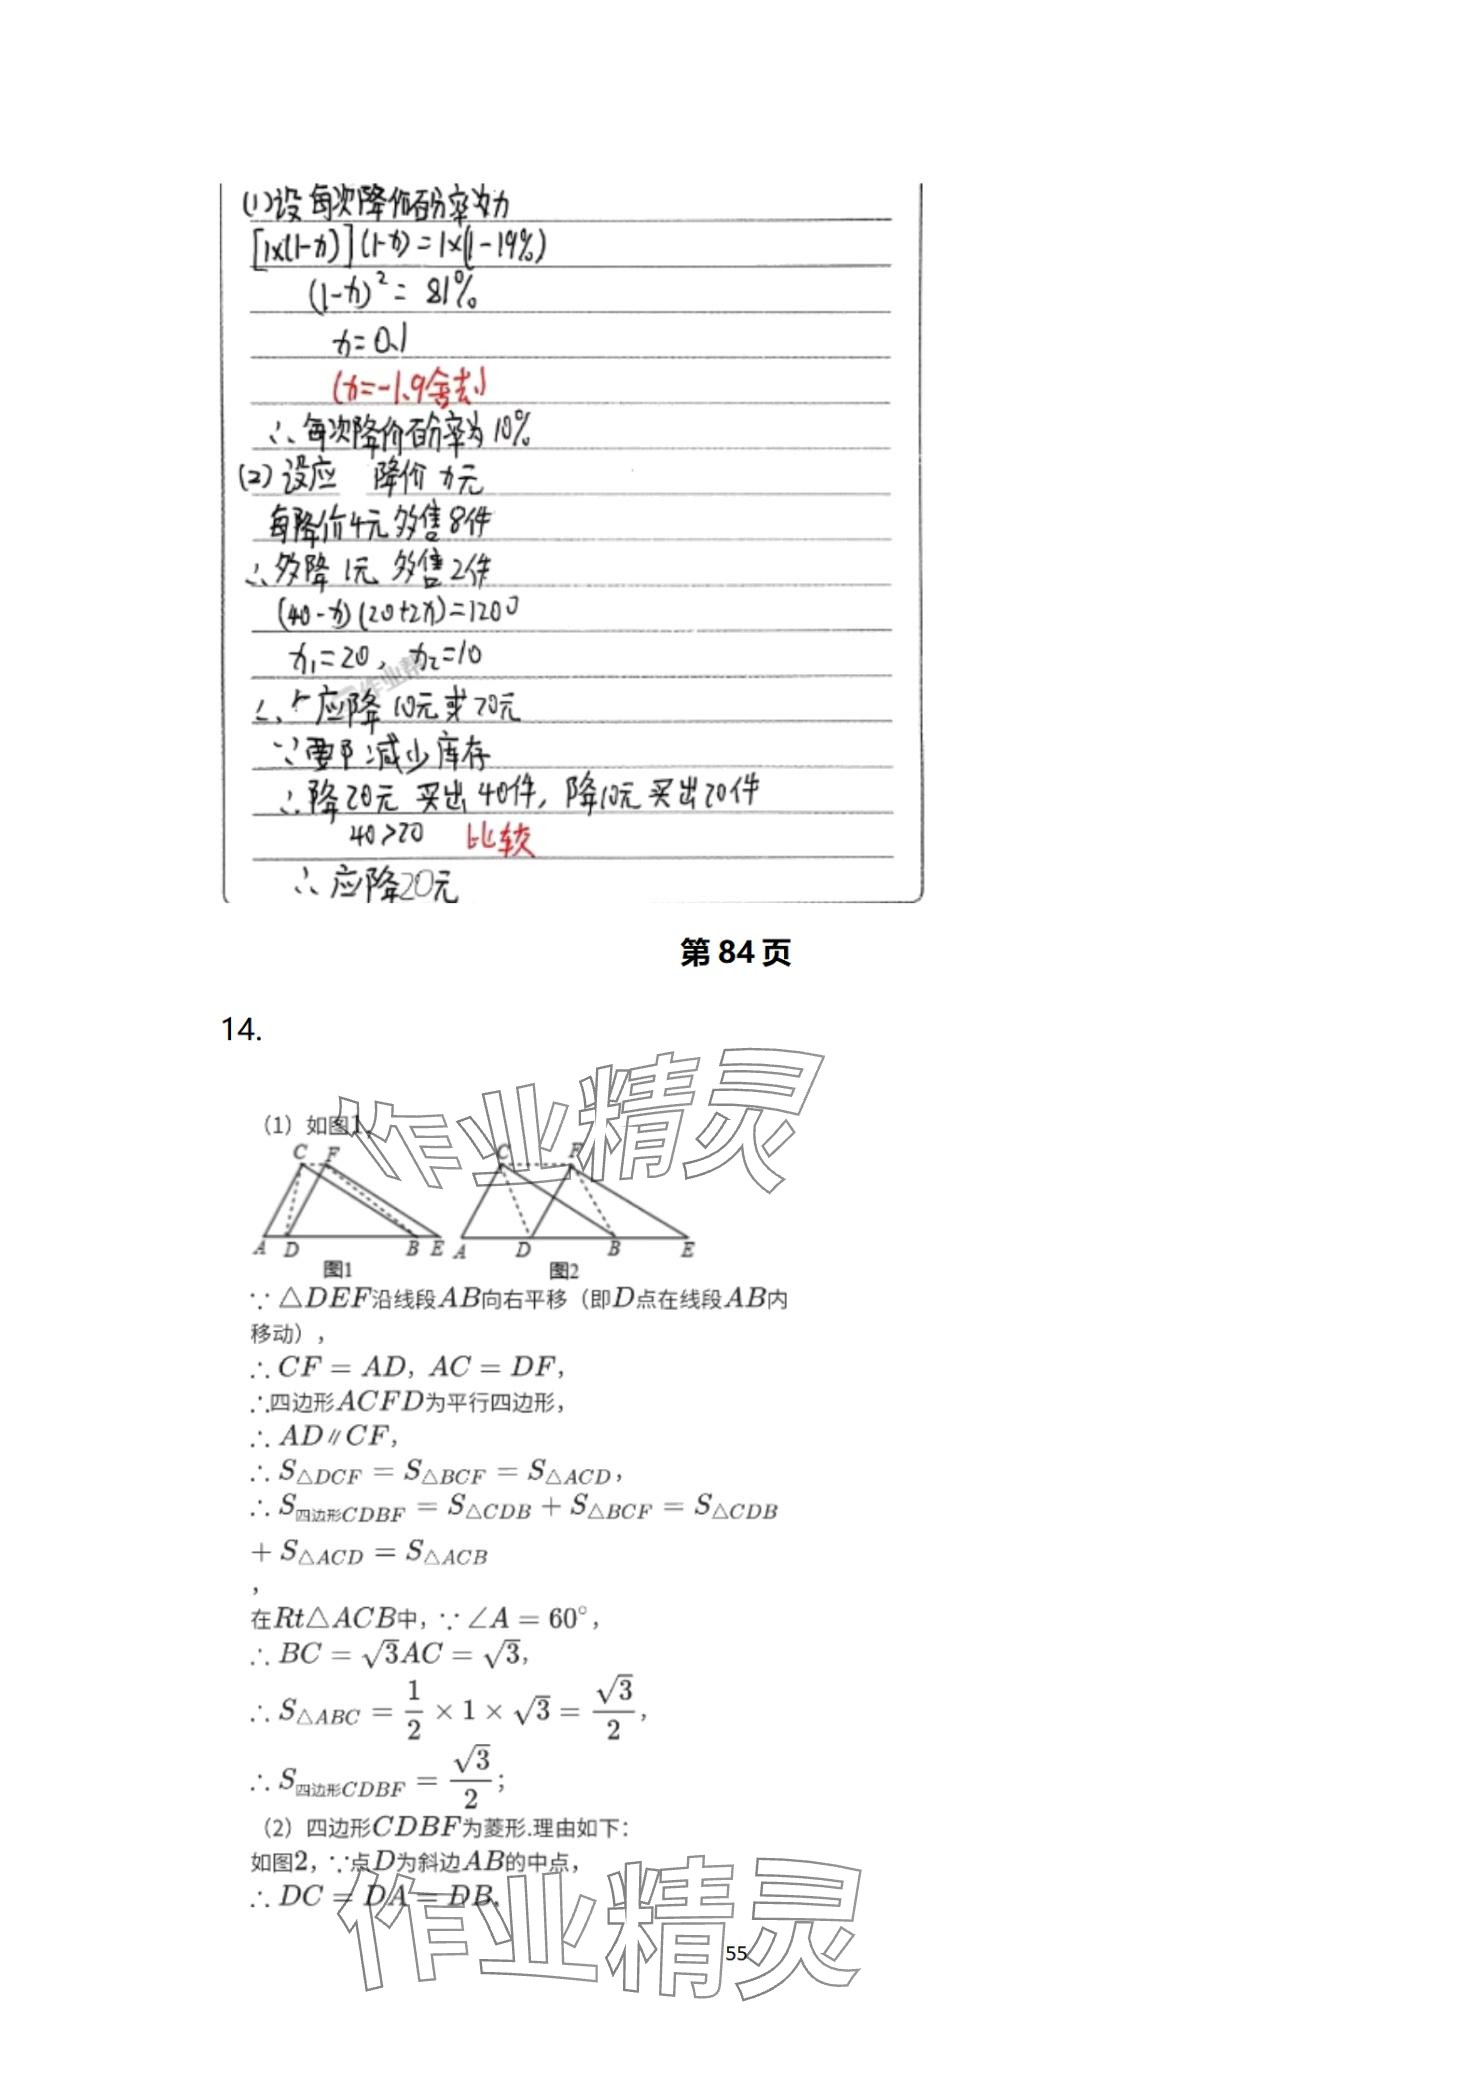 (1)设每次降价百分率为x
[1×(1-x)](1-x)=1×(1-19%)
(1-x)²= 81%
x=0.1
(x=-1.9舍去)
∴每次降价百分率为10%
(2)设应 降价 x元
每降价4元多售8件
∴多降1元 多售2件
(40-x)(20+2x)=1200
x₁=20, x₂=10
作业帮
∴应降10元或20元
∵要 减少库存
∴降20元 买出40件, 降10元买出20件
40>20 比较
∴应降20元
第 84 页
14.
作业精灵
（1）如图1,
C F C F
A D B E A D B E
图1 图2
∵ △DEF沿线段AB向右平移（即D点在线段AB内
移动）,
∴ CF = AD, AC = DF,
∴四边形ACFD为平行四边形,
∴ AD∥CF,
∴ S△DCF = S△BCF = S△ACD,
∴ S四边形CDBF = S△CDB + S△BCF = S△CDB
+ S△ACD = S△ACB
,
在Rt△ACB中, ∵ ∠A = 60°,
∴ BC = √3AC = √3,
∴ S△ABC = 1/2 × 1 × √3 = √3/2,
∴ S四边形CDBF = √3/2;
（2）四边形CDBF为菱形.理由如下:
如图2, ∵点D为斜边AB的中点,
∴ DC = DA = DB,
作业精灵
55